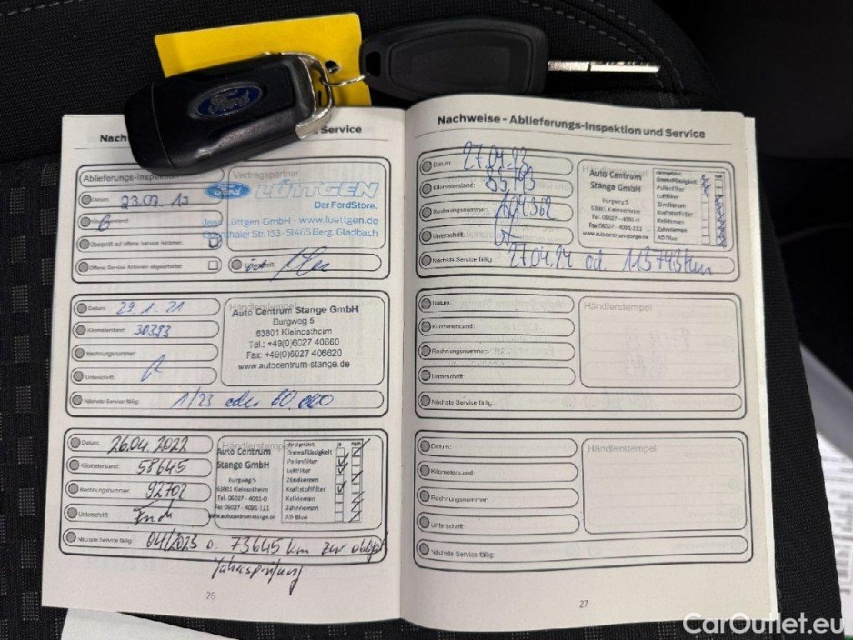 Ford
Nachweise - Ablieferungs-Inspektion und Service
Ablieferungs-Inspektion
Vertragspartner
Datum: 23.07.19
Ford LÜTTGEN
Kilometerstand: 6
Der FordStore.
Lüttgen GmbH · www.luettgen.de
Str. 153 · 51465 Berg. Gladbach
Überprüft auf offene Service Aktionen:
Offene Service Aktionen abgearbeitet:
Datum: 29.1.21
Händlerstempel
Auto Centrum Stange GmbH
Burgweg 5
Kilometerstand: 30393
63801 Kleinostheim
Tel.: +49(0)6027 40660
Rechnungsnummer:
Fax: +49(0)6027 406620
www.autocentrum-stange.de
Unterschrift:
Nächste Service fällig: 1/23 oder 60.000
Datum: 26.04.2022
Händlerstempel
Auto Centrum
Stange GmbH
Kilometerstand: 58645
Burgweg 5
63801 Kleinostheim
Rechnungsnummer: 92702
Tel. 06027 - 4091-0
Fax 06027 - 4091-111
Unterschrift:
www.autocentrum-stange.de
Bremsflüssigkeit
Pollenfilter
Luftfilter
Zündkerzen
Kraftstofffilter
Keilriemen
Zahnriemen
AD Blue
Nächste Service fällig: 04/2023 o. 73645 km zur
Jahresprüfung
26
Nachweise - Ablieferungs-Inspektion und Service
Datum: 27.04.23
Kilometerstand: 83.743
Rechnungsnummer: 104362
Unterschrift:
Auto Centrum
Stange GmbH
Burgweg 5
63801 Kleinostheim
Tel. 06027 - 4091-0
Fax 06027 - 4091-111
www.autocentrum-stange.de
Bremsflüssigkeit
Pollenfilter
Luftfilter
Zündkerzen
Kraftstofffilter
Keilriemen
Zahnriemen
AD Blue
Nächste Service fällig: 27.04.24 od 113743km
Datum:
Händlerstempel
Kilometerstand:
Rechnungsnummer:
Unterschrift:
Nächste Service fällig:
Datum:
Händlerstempel
Kilometerstand:
Rechnungsnummer:
Unterschrift:
Nächste Service fällig:
27
CarOutlet.eu